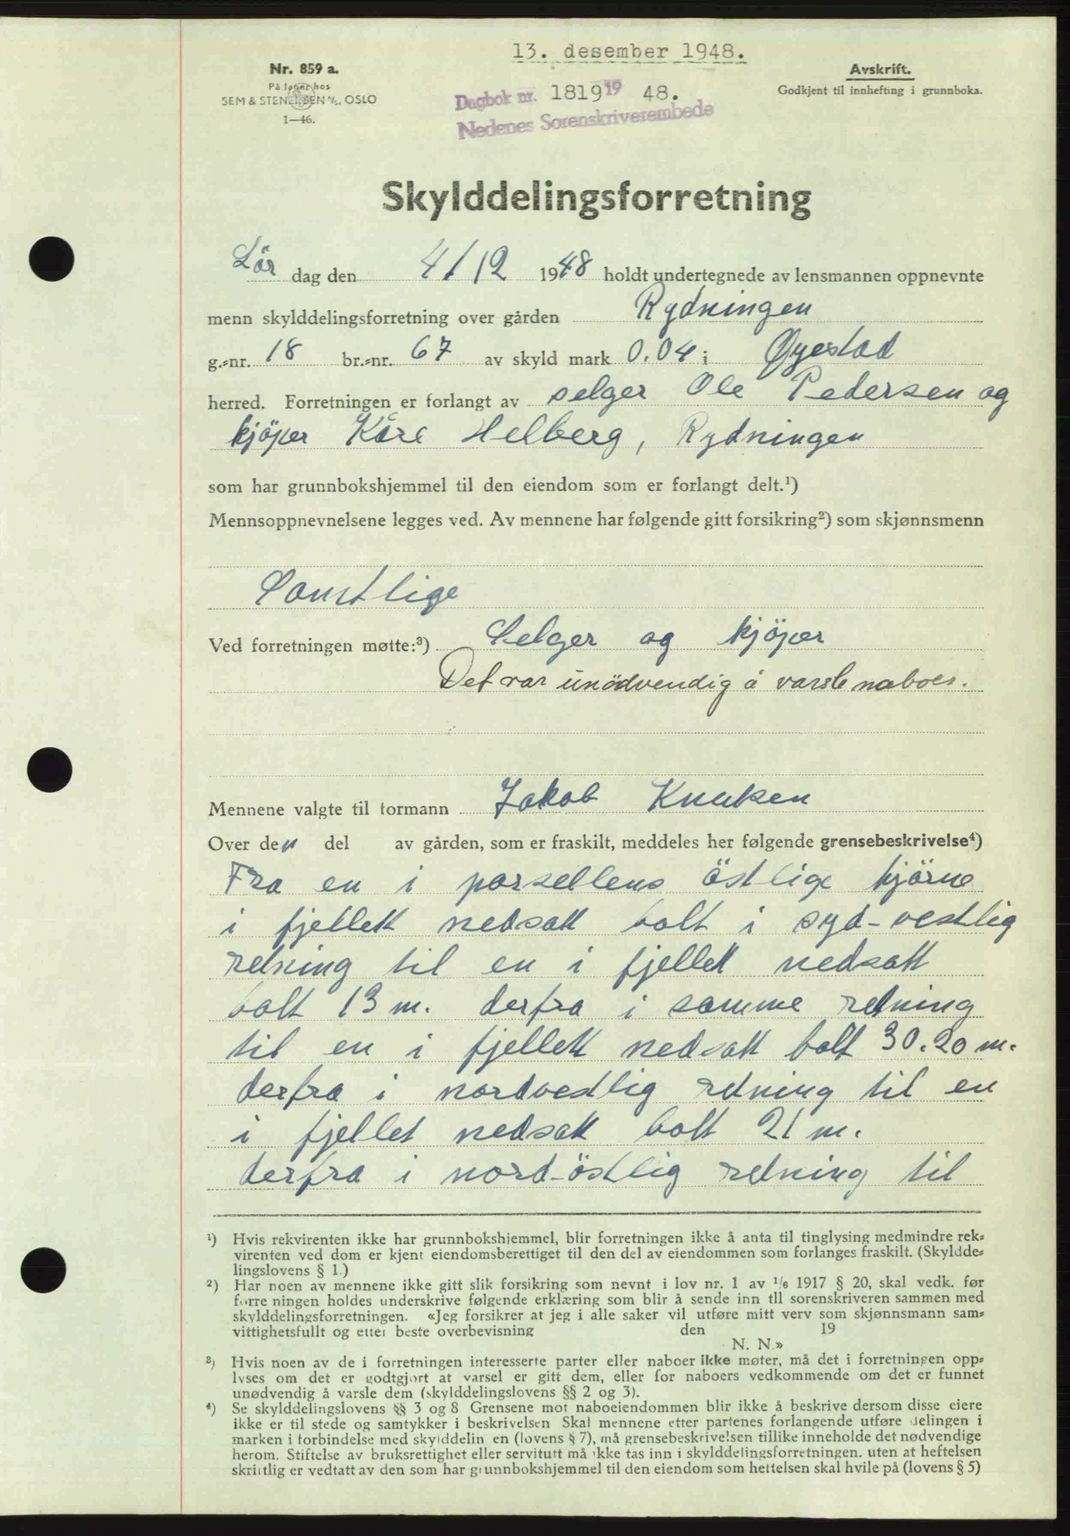 13. desember 1948.
Nr. 859 a.
På lager hos
SEM & STENERSEN A/S, OSLO
1—46.
Avskrift.
Godkjent til innhefting i grunnboka.
Dagbok nr. 1819 19 48.
Nedenes Sorenskriverembede
Skylddelingsforretning
Lör dag den 4/12 1948 holdt undertegnede av lensmannen oppnevnte
menn skylddelingsforretning over gården Rydningen
g.-nr. 18 br.-nr. 67 av skyld mark 0.04 i Øyestad
herred. Forretningen er forlangt av selger Ole Pedersen og
kjöper Kåre Helberg, Rydningen
som har grunnbokshjemmel til den eiendom som er forlangt delt.¹)
Mennsoppnevnelsene legges ved. Av mennene har følgende gitt forsikring²) som skjønnsmenn
Samtlige
Ved forretningen møtte:³) Selger og kjöper
Det var unödvendig å varsle naboer.
Mennene valgte til formann Jakob Knutsen
Over den del av gården, som er fraskilt, meddeles her følgende grensebeskrivelse⁴)
Fra en i parsellens östlige hjörne
i fjellet nedsatt bolt i syd-vestlig
retning til en i fjellet nedsatt
bolt 13 m. derfra i samme retning
til en i fjellet nedsatt bolt 30.20 m.
derfra i nordvestlig retning til en
i fjellet nedsatt bolt 21 m.
derfra i nord-östlig retning til
¹) Hvis rekvirenten ikke har grunnbokshjemmel, blir forretningen ikke å anta til tinglysing medmindre rek-
virenten ved dom er kjent eiendomsberettiget til den del av eiendommen som forlanges fraskilt. (Skyldde-
lingslovens § 1.)
²) Har noen av mennene ikke gitt slik forsikring som nevnt i lov nr. 1 av 1/6 1917 § 20, skal vedk. før
forretningen holdes underskrive følgende erklæring som blir å sende inn til sorenskriveren sammen med
skylddelingsforretningen. «Jeg forsikrer at jeg i alle saker vil utføre mitt verv som skjønnsmann sam-
vittighetsfullt og etter beste overbevisning den 19
N. N.»
³) Hvis noen av de i forretningen interesserte parter eller naboer ikke møter, må det i forretningen opp-
lyses om det er godtgjort at varsel er gitt dem, eller for naboers vedkommende om det er funnet
unødvendig å varsle dem (skylddelingslovens §§ 2 og 3).
⁴) Se skylddelingslovens §§ 3 og 8 Grensene mot naboeiendommen blir ikke å beskrive dersom disse eiere
ikke er til stede og samtykker i beskrivelsen Skal mennene etter partenes forlangende utføre delingen i
marken i forbindelse med skylddelingen (lovens § 7), må grensebeskrivelsen tillike inneholde det nødvendige
herom. Stiftelse av bruksrettighet eller servitutt må ikke tas inn i skylddelingsforretningen, uten at heftelsen
skriftlig er vedtatt av den som har grunnbokshjemmel til den eiendom som heftelsen skal hvile på (lovens § 5)